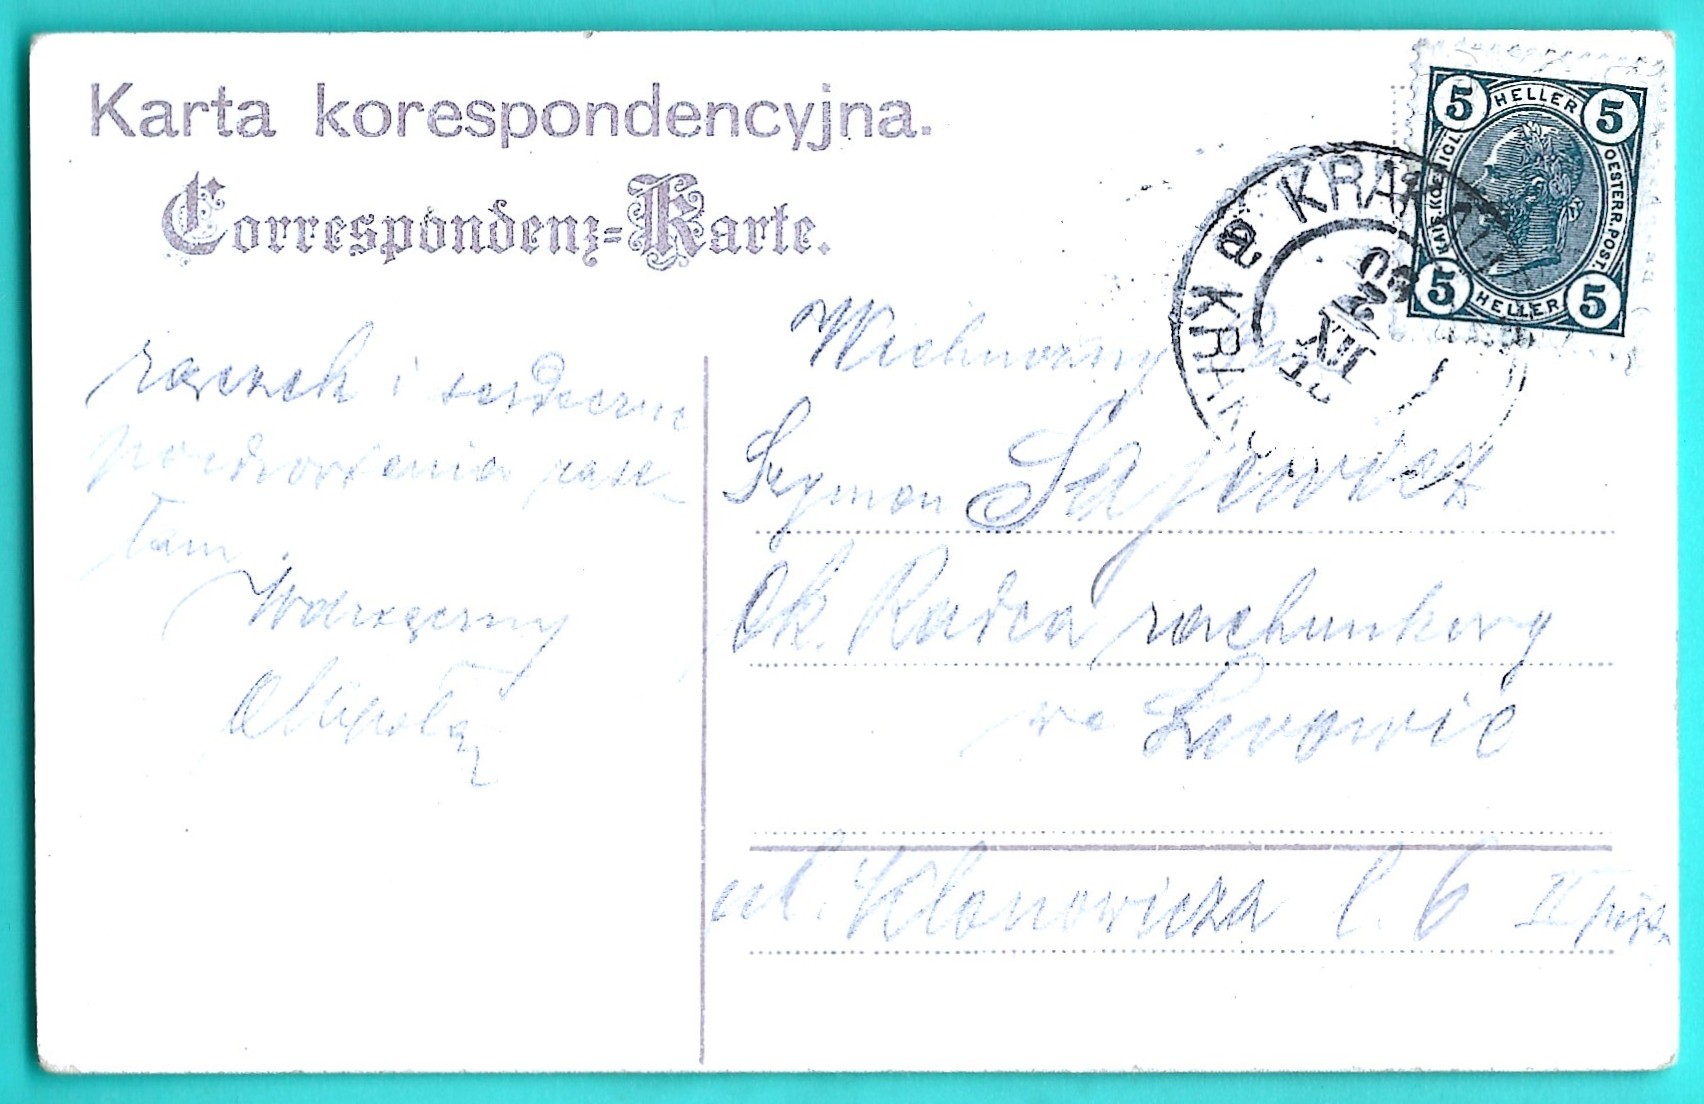 Karta korespondencyjna.
Correspondenz-Karte.
5 HELLER 5
KAIS. KOENIGL. OESTERR. POST.
5 HELLER 5
KRAKÓW
rączek i serdeczne
pozdrowienia zasy-
łam
Wdzięczny
Wielmożny
Szymon Sajewicz
Ck. Radca rachunkowy
we Lwowie
ul. Klonowicza l. 6 II piętr.